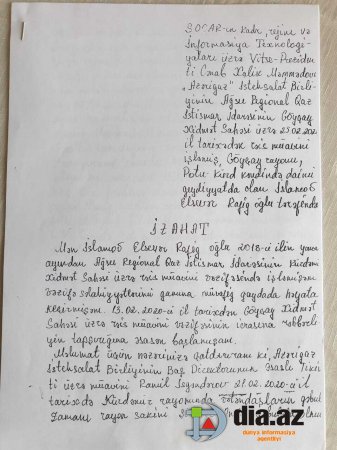 SOCAR-ın Kadr, rejim və
İnformasiya Texnologi-
yaları üzrə Vitse-Prezidenti
Cənab Xalik Məmmədova
"Azəriqaz" İstehsalat Birli-
yinin Ağsu Regional Qaz
İstismar İdarəsinin Göyçay
Xidmət Sahəsi üzrə
il tarixədək rəis müavini
işləmiş, Göyçay rayonu,
Potu kənd kəndində daimi
qeydiyyatda olan İslamov
Elsevər Rafiq oğlu tərəfindən
İZAHAT
Mən İslamov Elsevər Rafiq oğlu 2018-ci ilin
ayından Ağsu Regional Qaz İstismar İdarəsinin Kürdəmir
Xidmət Sahəsi üzrə rəis müavini vəzifəsində işləmişəm
vəzifə səlahiyyətlərimi qanuna müvafiq qaydada həyata
keçirmişəm. 13.02.2020-ci il tarixdən Göyçay Xidmət
Sahəsi üzrə rəis müavini vəzifəsinin icrasına rəhbərli-
yin tapşırığına əsasən başlamışam.
Məlumat üçün nəzərinizə çatdırıram ki Azəriqaz
İstehsalat Birliyinin Baş Direktorunun
üzrə müavini Ramil İsgəndərov 27.02.2020-ci il
tarixdə Kürdəmir rayonunda vətəndaşların qəbul
zamanı rayon sakini
dia.az
dünya informasiya
agentliyi